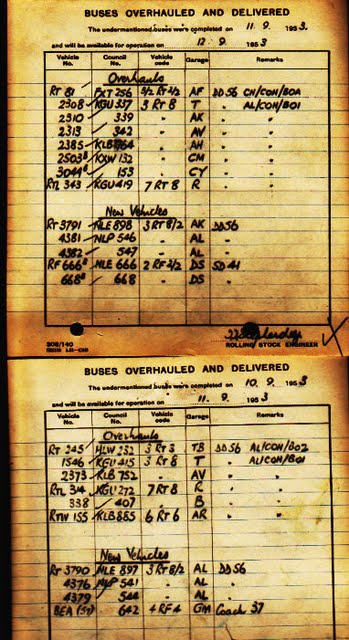 BUSES OVERHAULED AND DELIVERED
The undermentioned buses were completed on 11. 9. 1953.
and will be available for operation on 12. 9. 1953
Vehicle No. Council No. Vehicle code Garage Remarks
Overhauls
RT 81 FXT 256 3/2 RT 2/2 AF DD 56 CH/COH/BOA
2308 KGU 337 3 RT 8 T " AL/COH/BO1
2310 339 " AK " "
2313 342 " AV " "
2385 KLB 764 " AH " "
2503 KXW 132 " CM " "
3044 153 " CY " "
RTL 343 KGU 419 7 RT 8 R " "
New Vehicles
RT 3791 NLE 898 3 RT 8/2 AK DD56
4381 NLP 546 " AL "
4382 547 " AL "
RF 666 NLE 666 2 RF 2/2 DS SD 41
668 668 " DS "
ROLLING STOCK ENGINEER
BUSES OVERHAULED AND DELIVERED
The undermentioned buses were completed on 10. 9. 1953
and will be available for operation on 11. 9. 1953
Vehicle No. Council No. Vehicle code Garage Remarks
Overhauls
RT 245 HLW 232 3 RT 3 TB DD 56 AL/COH/BO2
1546 KGU 415 3 RT 8 T " AL/COH/BO1
2373 KLB 752 " AV " "
RTL 314 KGU 272 7 RT 8 R " "
338 407 " B " "
RTW 155 KLB 885 6 RT 6 AR " "
New Vehicles
RT 3790 NLE 897 3 RT 8/2 AL DD 56
4376 NLP 541 " AL "
4379 544 " AL "
BEA (57) 642 4 RF 4 GM Coach 37